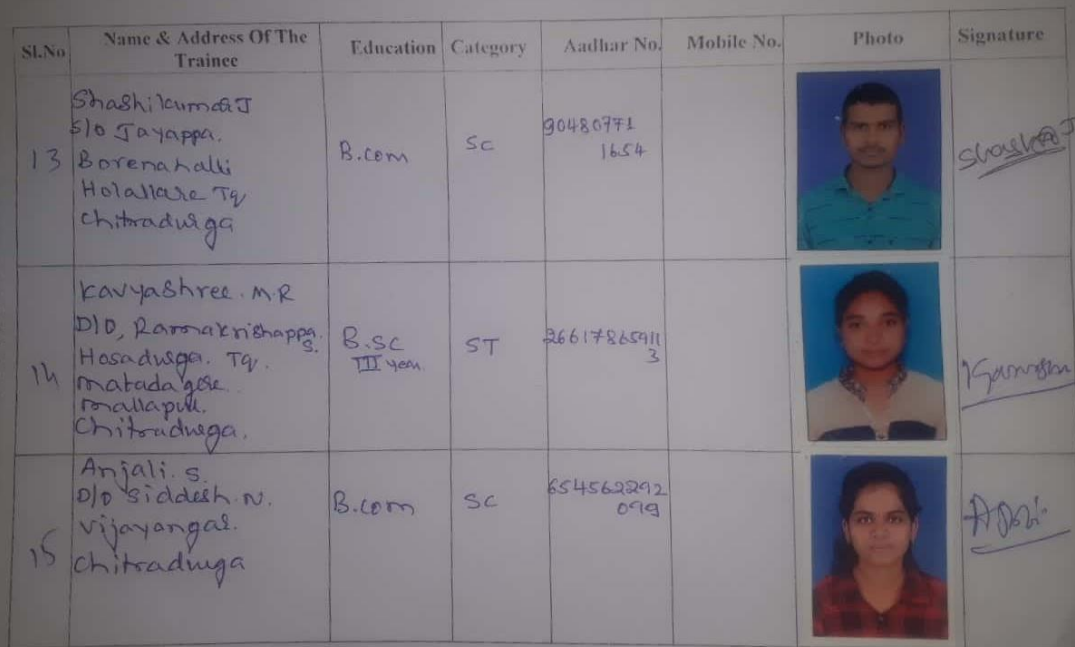 Sl.No
Name & Address Of The
Trainee
Education
Category
Aadhar No.
Mobile No.
Photo
Signature
13
Shashikumar J
S/o Jayappa.
Borenahalli
Holalkere Tq
Chitradurga
B.com
SC
90480771
1654
14
Kavyashree. M.R
D/O, Ramakrishappa.
S.
Hosadurga. Tq.
matadagere
mallapur.
Chitradurga.
B.SC
III year
ST
26617865911
3
15
Anjali. S.
D/O Siddesh. N.
Vijayangar.
Chitradurga
B.com
SC
654562292
099